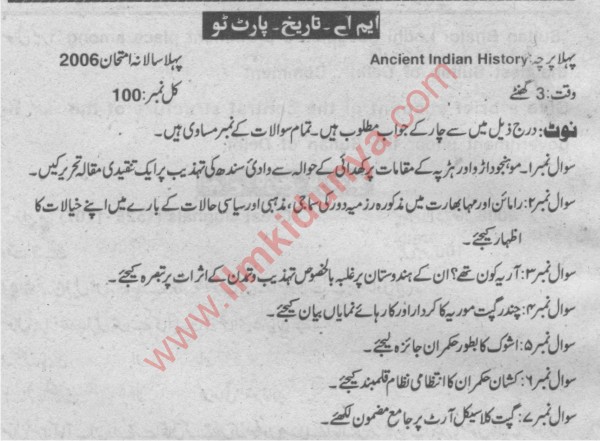 ایم اے۔ تاریخ۔ پارٹ ٹو
پہلا پرچہ: Ancient Indian History پہلا سالانہ امتحان 2006
وقت: 3 گھنٹے کل نمبر: 100
نوٹ: درج ذیل میں سے چار کے جواب مطلوب ہیں۔ تمام سوالات کے نمبر مساوی ہیں۔
سوال نمبر ۱۔ موہنجوداڑو اور ہڑپہ کے مقامات پر کھدائی کے حوالہ سے وادیٔ سندھ کی تہذیب پر ایک تنقیدی مقالہ تحریر کیں۔
سوال نمبر ۲: رامائن اور مہابھارت میں مذکورہ رزمیہ دور کی سماجی، مذہبی اور سیاسی حالات کے بارے میں اپنے خیالات کا
اظہار کیجئے۔
سوال نمبر ۳: آریہ کون تھے؟ ان کے ہندوستان پر غلبہ بالخصوص تہذیب و تمدن کے اثرات پر تبصرہ کیجئے۔
سوال نمبر ۴: چندر گپت موریہ کا کردار اور کارہائے نمایاں بیان کیجئے۔
سوال نمبر ۵: اشوک کا بطور حکمران جائزہ لیجئے۔
سوال نمبر ۶: کشان حکمران کا انتظامی نظام قلمبند کیجئے۔
سوال نمبر ۷: گپت کلاسیکل آرٹ پر جامع مضمون لکھئے۔
www.ilmkidunya.com